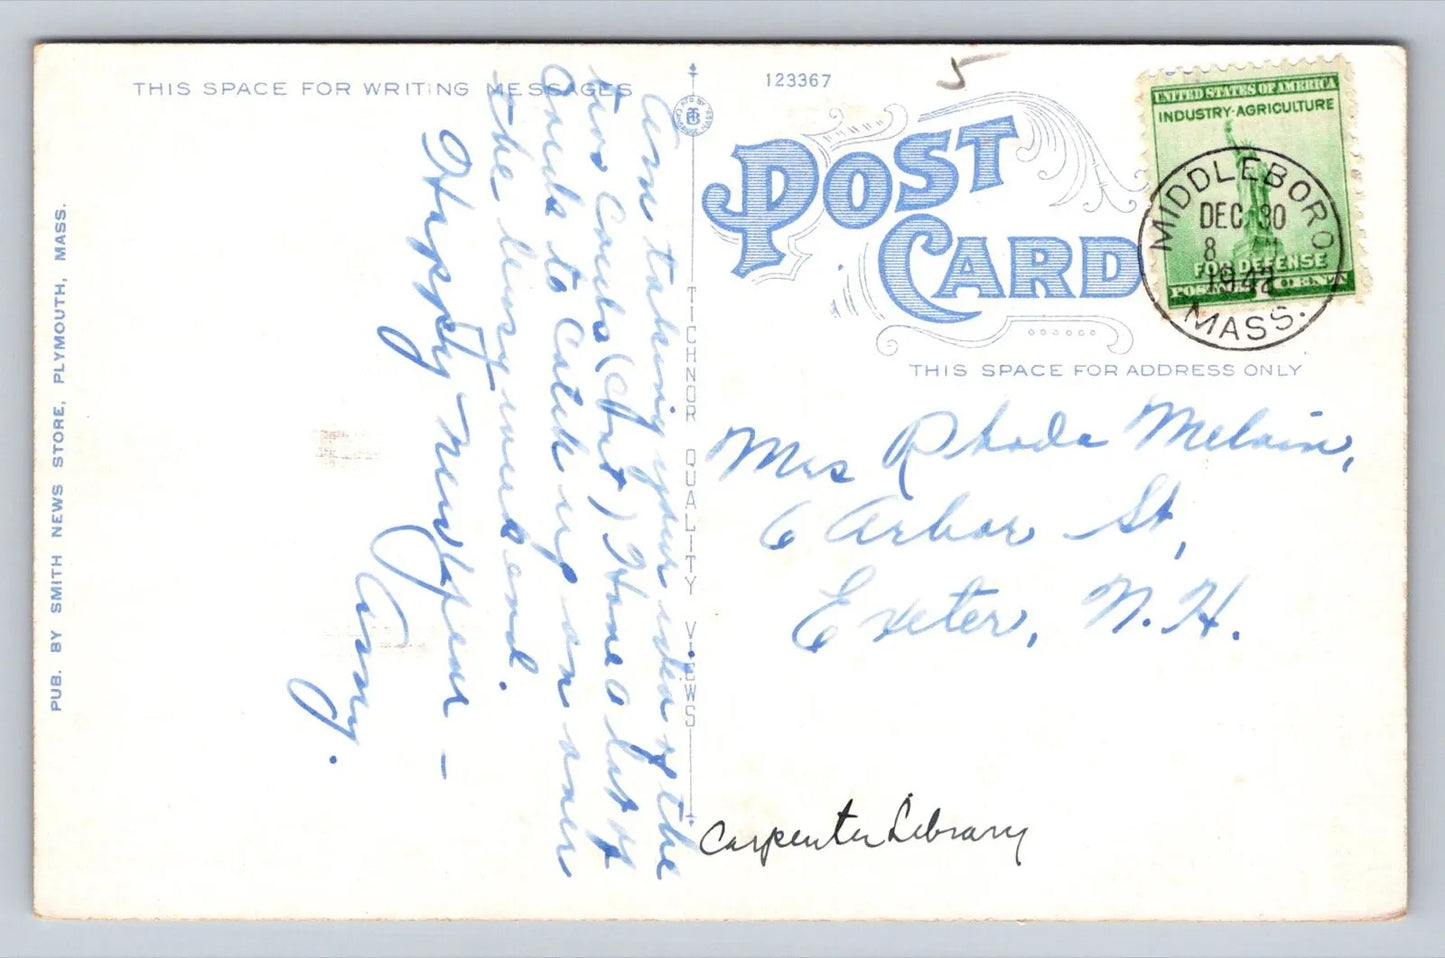 THIS SPACE FOR WRITING MESSAGES
Am taking your idea of the
two Cards (Cent) Have a lot of
Cards to Catch up on over
the long weekend.
Happy New Year –
Amy.
PUB. BY SMITH NEWS STORE, PLYMOUTH, MASS.
TICHNOR QUALITY VIEWS
123367
5
POST
CARD
THIS SPACE FOR ADDRESS ONLY
UNITED STATES OF AMERICA
INDUSTRY·AGRICULTURE
FOR DEFENSE
MIDDLEBORO
DEC 30
8
MASS.
Mrs Rhoda Melvin,
6 Arbor St,
Exeter, N.H.
Carpenter Library